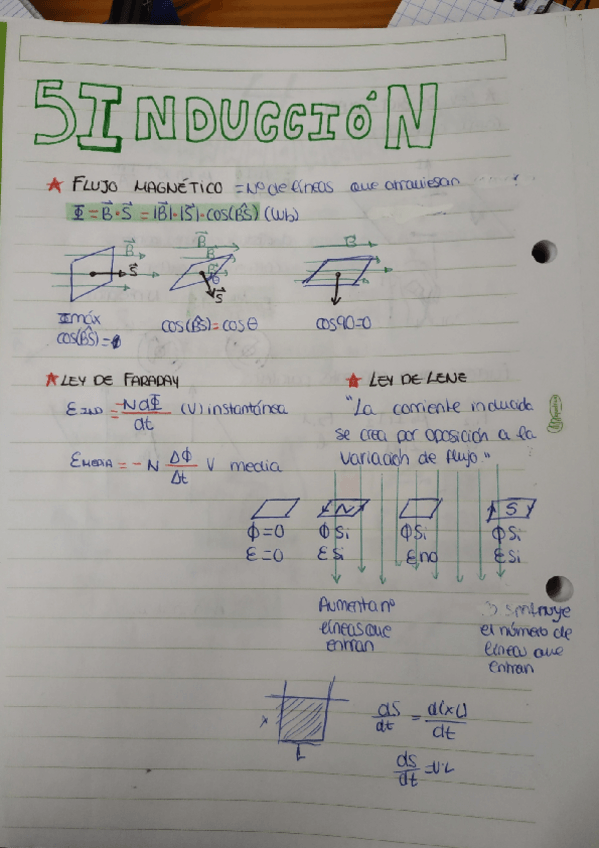 5 INDUCCIÓN
★ FLUJO MAGNÉTICO = Nº de líneas que atraviesan
Φ = B⃗ · S⃗ = |B⃗| · |S⃗| · cos(B̂S) (Wb)
B⃗
S⃗
B⃗
B⃗
θ
S⃗
B⃗
Φ máx
cos(B̂S)=
cos(B̂S) = cosθ
cos90=0
★ LEY DE FARADAY
ε IND = -N dΦ / dt (V) instantánea
ε MEDIA = -N ΔΦ / Δt V media
★ LEY DE LENE
"La corriente inducida
se crea por oposición a la
variación de flujo."
N
S
Φ=0 Φ Si Φ Si Φ Si
ε=0 ε Si ε no ε Si
Aumenta nº
líneas que
entran
el número de
líneas que
entran
x
L
dS/dt = d(x L)/dt
dS/dt = v·L